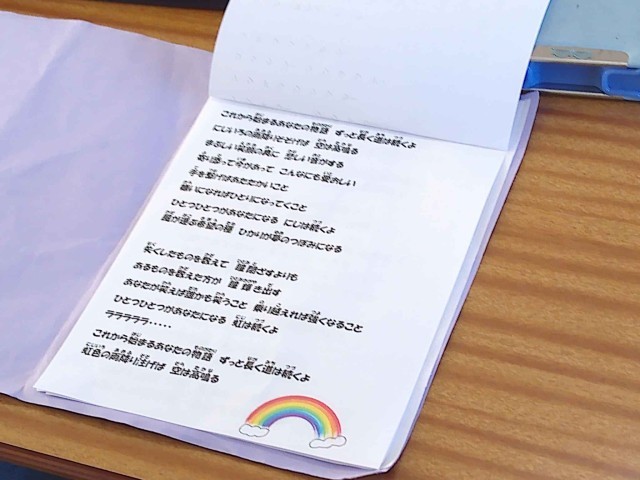 これから始まるあなたの物語 ずっと長く道は続くよ
にじいろの雨降りそそげば 空は高鳴る
まぶしい笑顔の奥に 悲しい音がする
寄り添って今があって こんなにも愛おしい
手を繋げばあたたかいこと
嫌いになればひとりになってくこと
ひとつひとつがあなたになる にじは続くよ
風が運ぶ希望の種 ひかりが夢のつぼみになる
失くしたものを数えて 瞳閉ざすよりも
あるものを数えた方が 瞳輝き出す
あなたが笑えば誰かも笑うこと 乗り越えれば強くなること
ひとつひとつがあなたになる 虹は続くよ
ラララララ・・・・・
これから始まるあなたの物語 ずっと長く道は続くよ
虹色の雨降り注げば 空は高鳴る